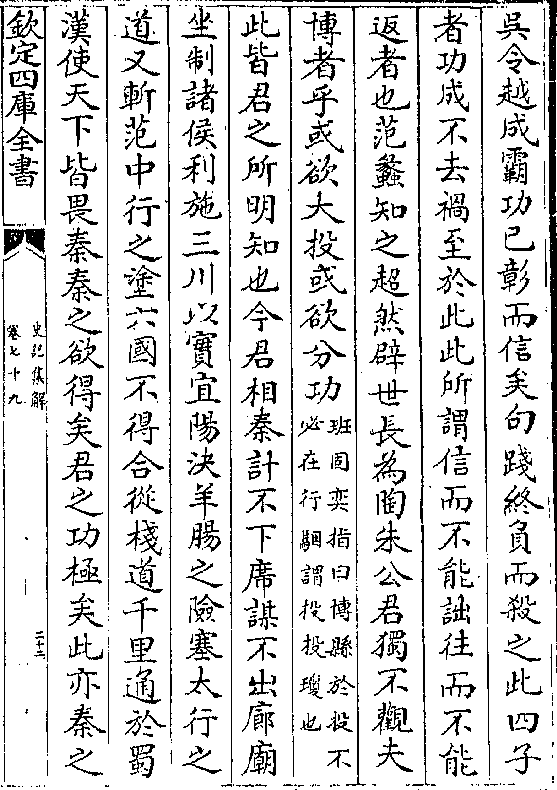 吳令越成霸功已彰而信矣句踐終負而殺之此四子
者功成不去禍至於此此所謂信而不能詘往而不能
返者也范蠡知之超然辟世長為陶朱公君獨不觀夫
博者乎或欲大投或欲分功班固奕指曰博縣於投不必在行駰謂投投瓊也
此皆君之所明知也今君相秦計不下席謀不出廊廟
坐制諸侯利施三川以實宜陽決羊腸之險塞太行之
道又斬范中行之塗六國不得合從棧道千里通於蜀
漢使天下皆畏秦秦之欲得矣君之功極矣此亦秦之
欽定四庫全書
史記集解
卷七十九
二十二